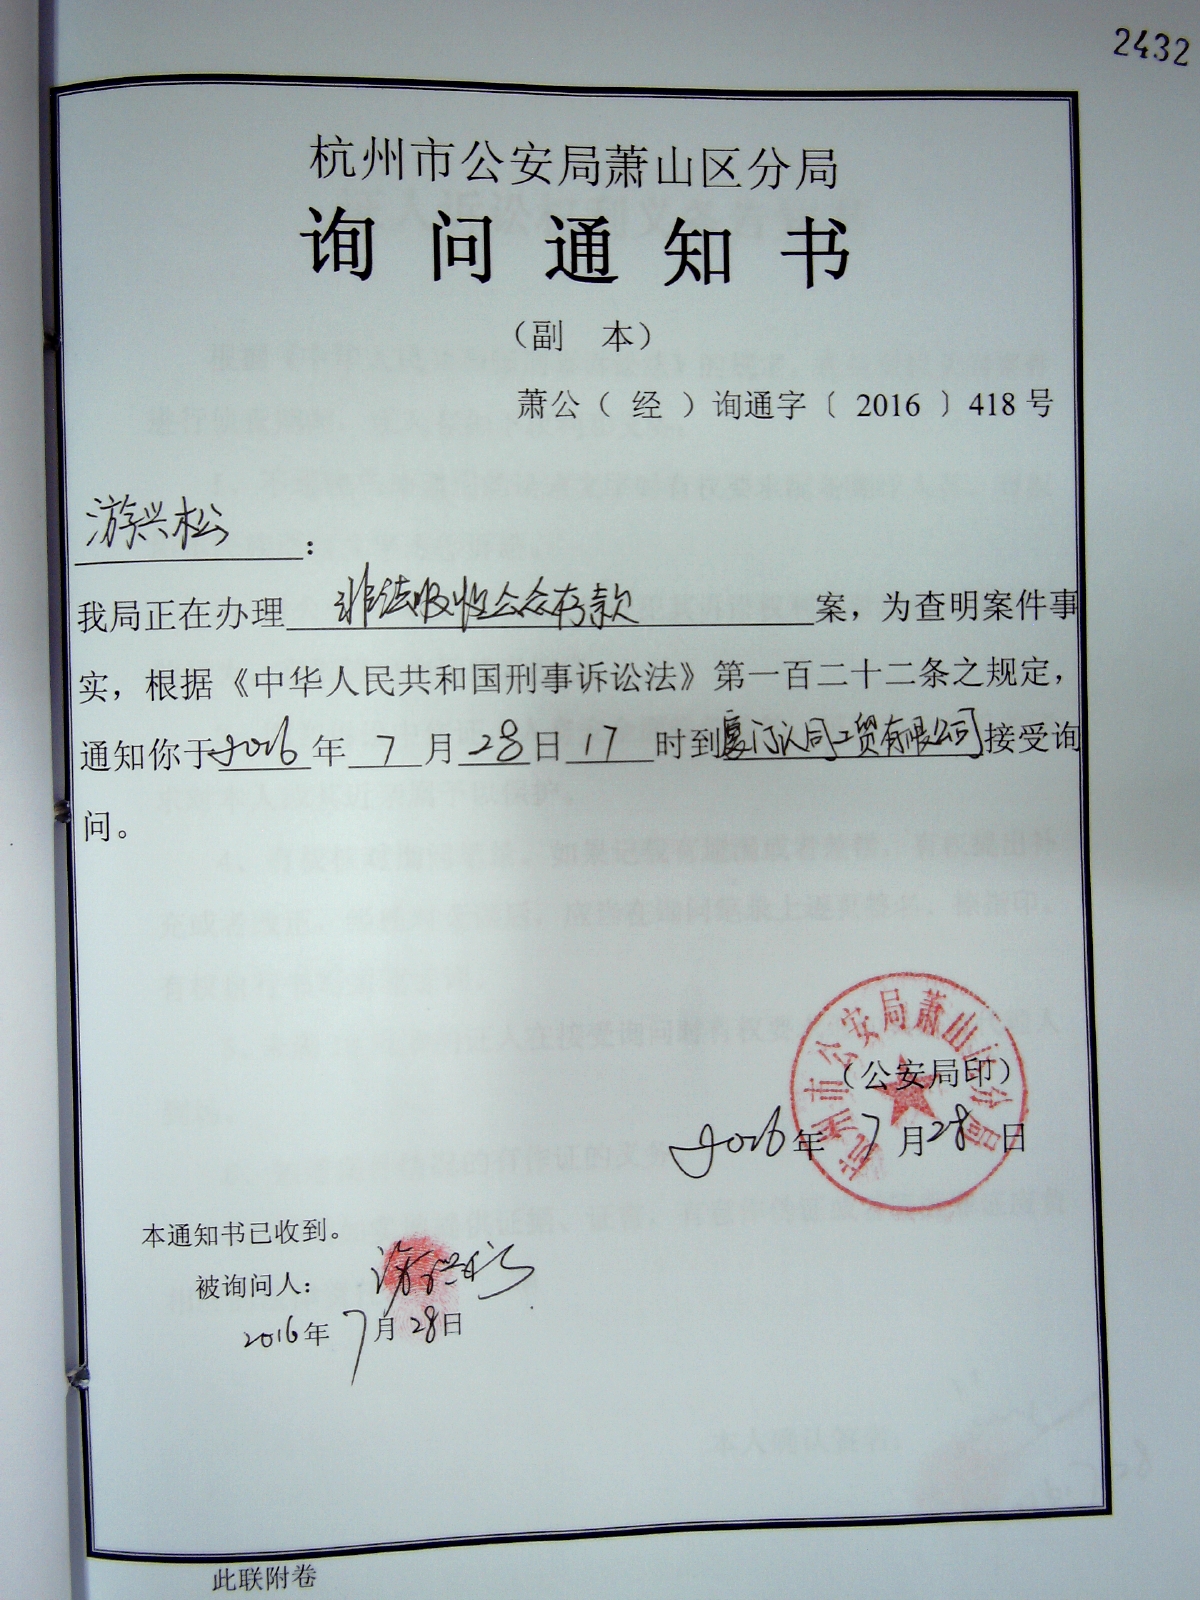 2432
杭州市公安局萧山区分局
询问通知书
（副 本）
萧公（ 经 ）询通字〔 2016 〕418 号
游兴松：
我局正在办理非法吸收公众存款案，为查明案件事
实，根据《中华人民共和国刑事诉讼法》第一百二十二条之规定，
通知你于2016年7月28日17时到厦门认同工贸有限公司接受询
问。
杭州市公安局萧山区分局
（公安局印）
2016年7月28日
本通知书已收到。
被询问人：游兴松
2016年7月28日
此联附卷